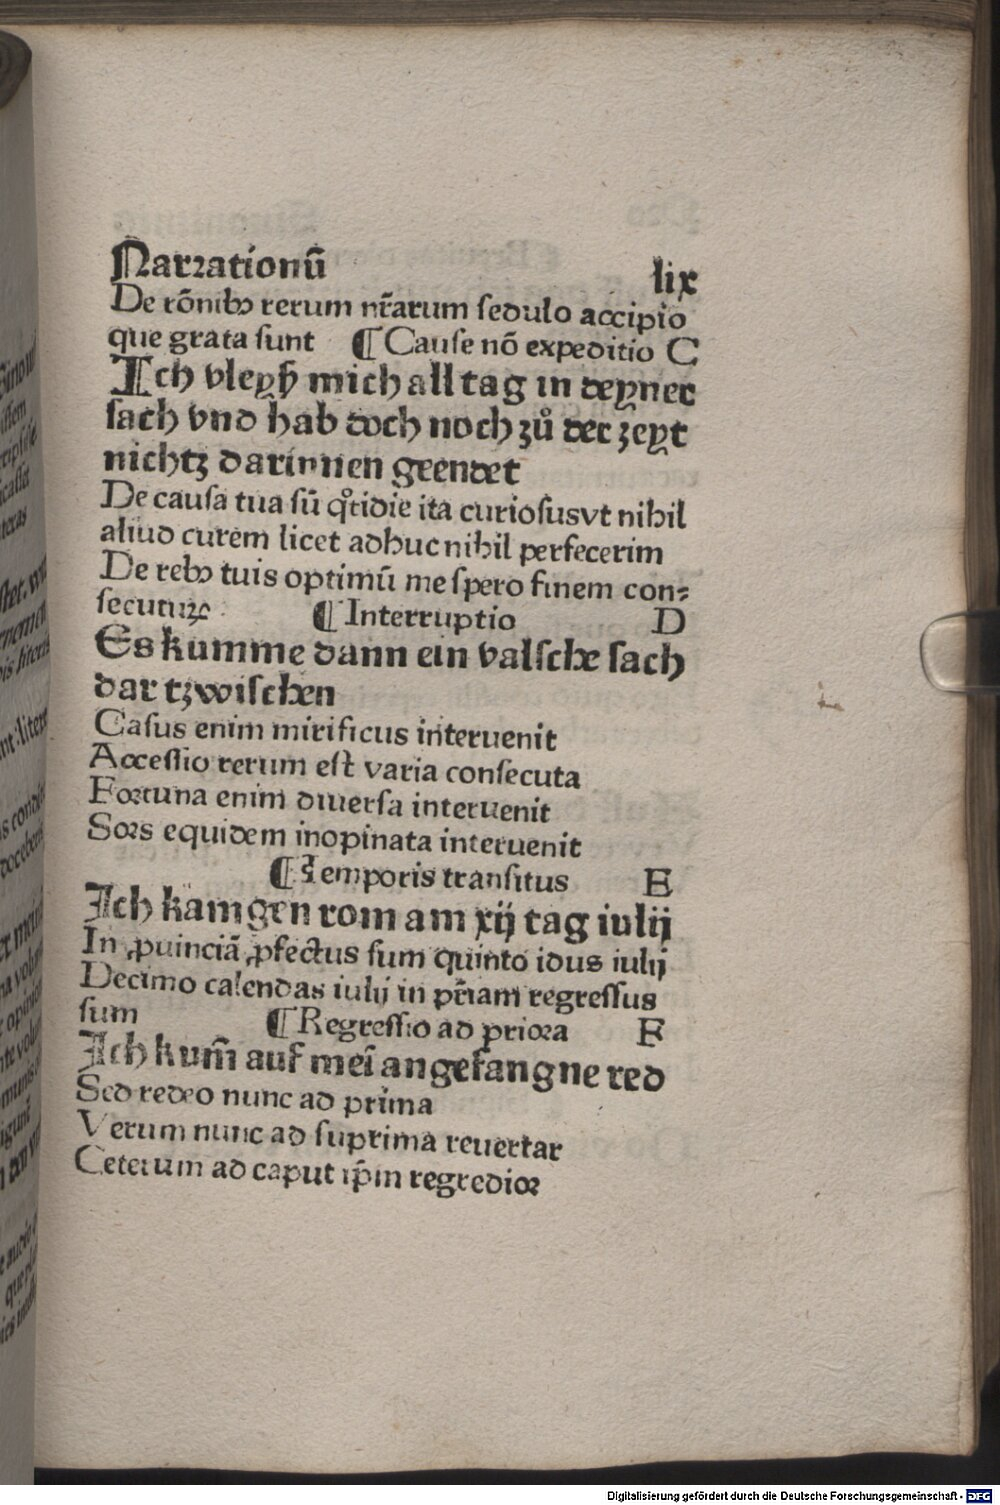 Narrationū lix
De rōnibꝫ rerum nr̄arum sedulo accipio
que grata sunt ¶ Cause nō expeditio C
Ich vleyß mich all tag in deyner
sach vnd hab doch noch zů der zeyt
nichtz darinnen geendet
De causa tua sū qͦtidie ita curiosusvt nihil
aliud curem licet adhuc nihil perfecerim
De rebꝫ tuis optimū me spero finem con⸗
secuturꝝ ¶ Interruptio D
Es kumme dann ein valsche sach
dar tzwischen
Casus enim mirificus interuenit
Accessio rerum est varia consecuta
Fortuna enim diuersa interuenit
Sors equidem inopinata interuenit
¶ Temporis transitus E
Ich kam gen rom am xij tag iulij
In ꝓuinciā ꝓfectus sum quinto idus iulij
Decimo calendas iulij in pr̄iam regressus
sum ¶ Regressio ad priora F
Ich kum̄ auf mei angefangne red
Sed redeo nunc ad prima
Verum nunc ad suprima reuertar
Ceterum ad caput ip̄m regredior
Digitalisierung gefördert durch die Deutsche Forschungsgemeinschaft - DFG